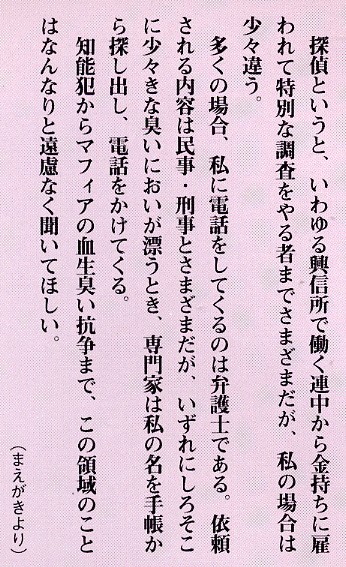 探偵というと、いわゆる興信所で働く連中から金持ちに雇
われて特別な調査をやる者までさまざまだが、私の場合は
少々違う。
多くの場合、私に電話をしてくるのは弁護士である。依頼
される内容は民事・刑事とさまざまだが、いずれにしろそこ
に少々きな臭いにおいが漂うとき、専門家は私の名を手帳か
ら探し出し、電話をかけてくる。
知能犯からマフィアの血生臭い抗争まで、この領域のこと
はなんなりと遠慮なく聞いてほしい。
（まえがきより）